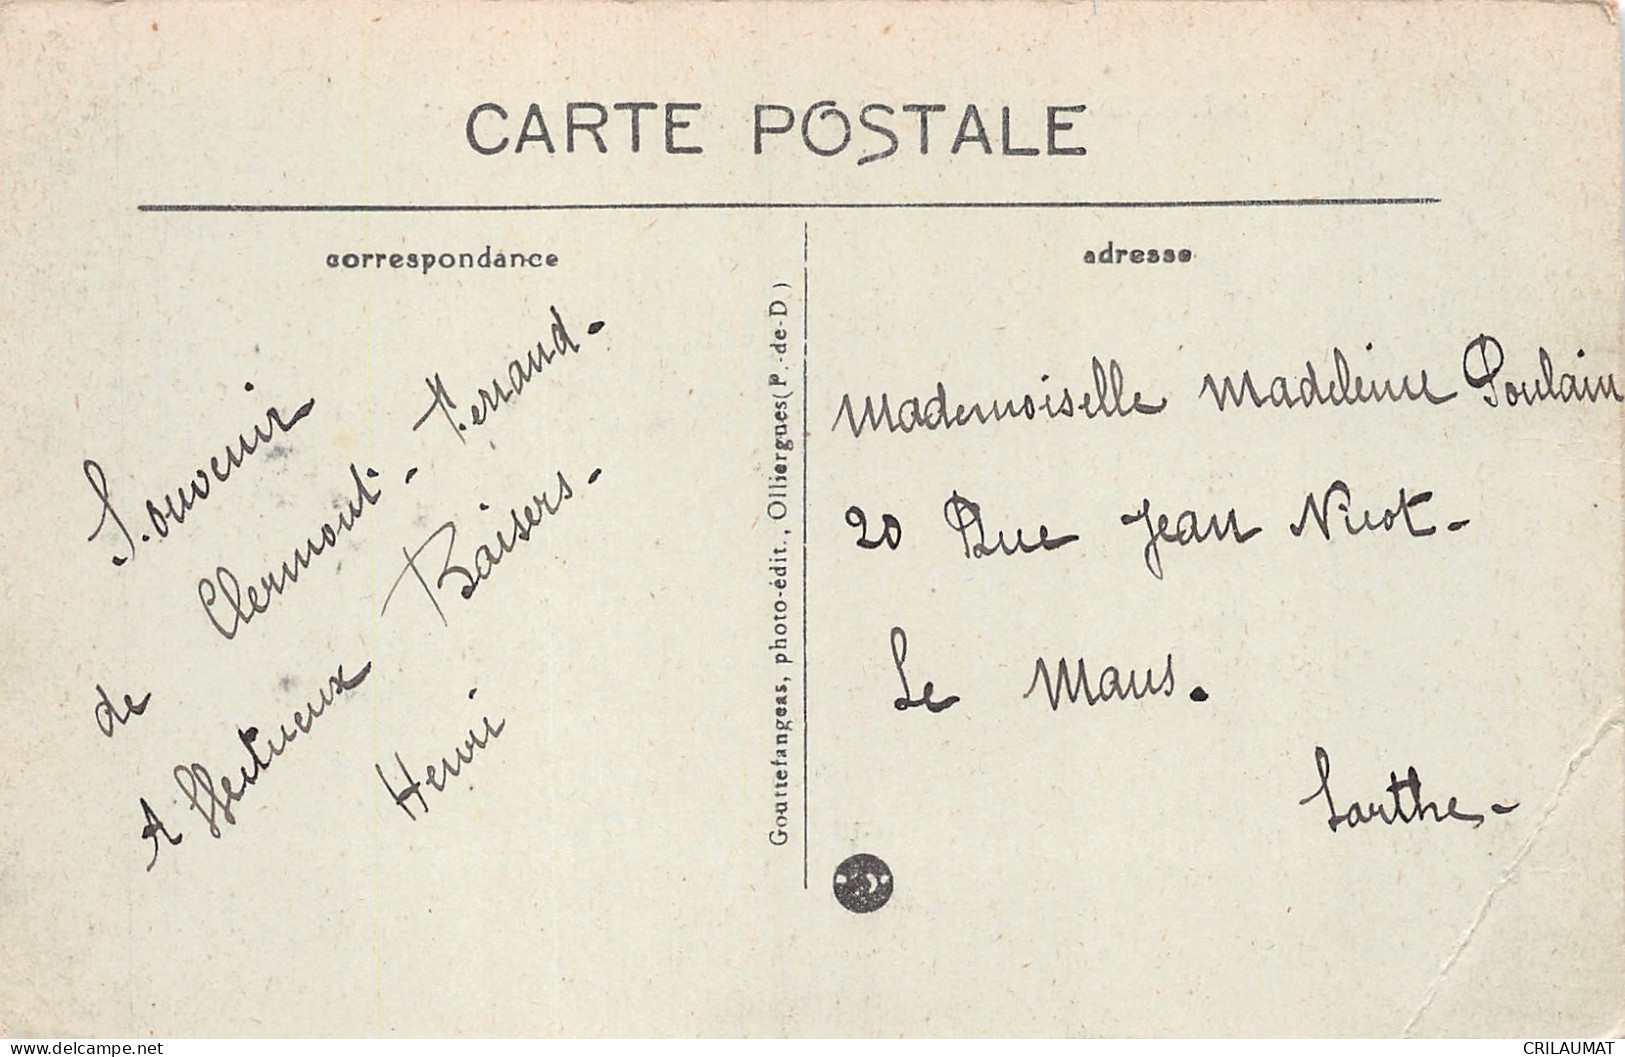 CARTE POSTALE
correspondance
adresse
Souvenir
de Clermont-Ferrand-
Affectueux Baisers-
Henri
Gouttefangeas, photo-édit., Olliergues (P.-de-D)
Mademoiselle Madeleine Poulain
20 Rue Jean Nicot-
Le Mans.
Sarthe-
CRILAUMAT